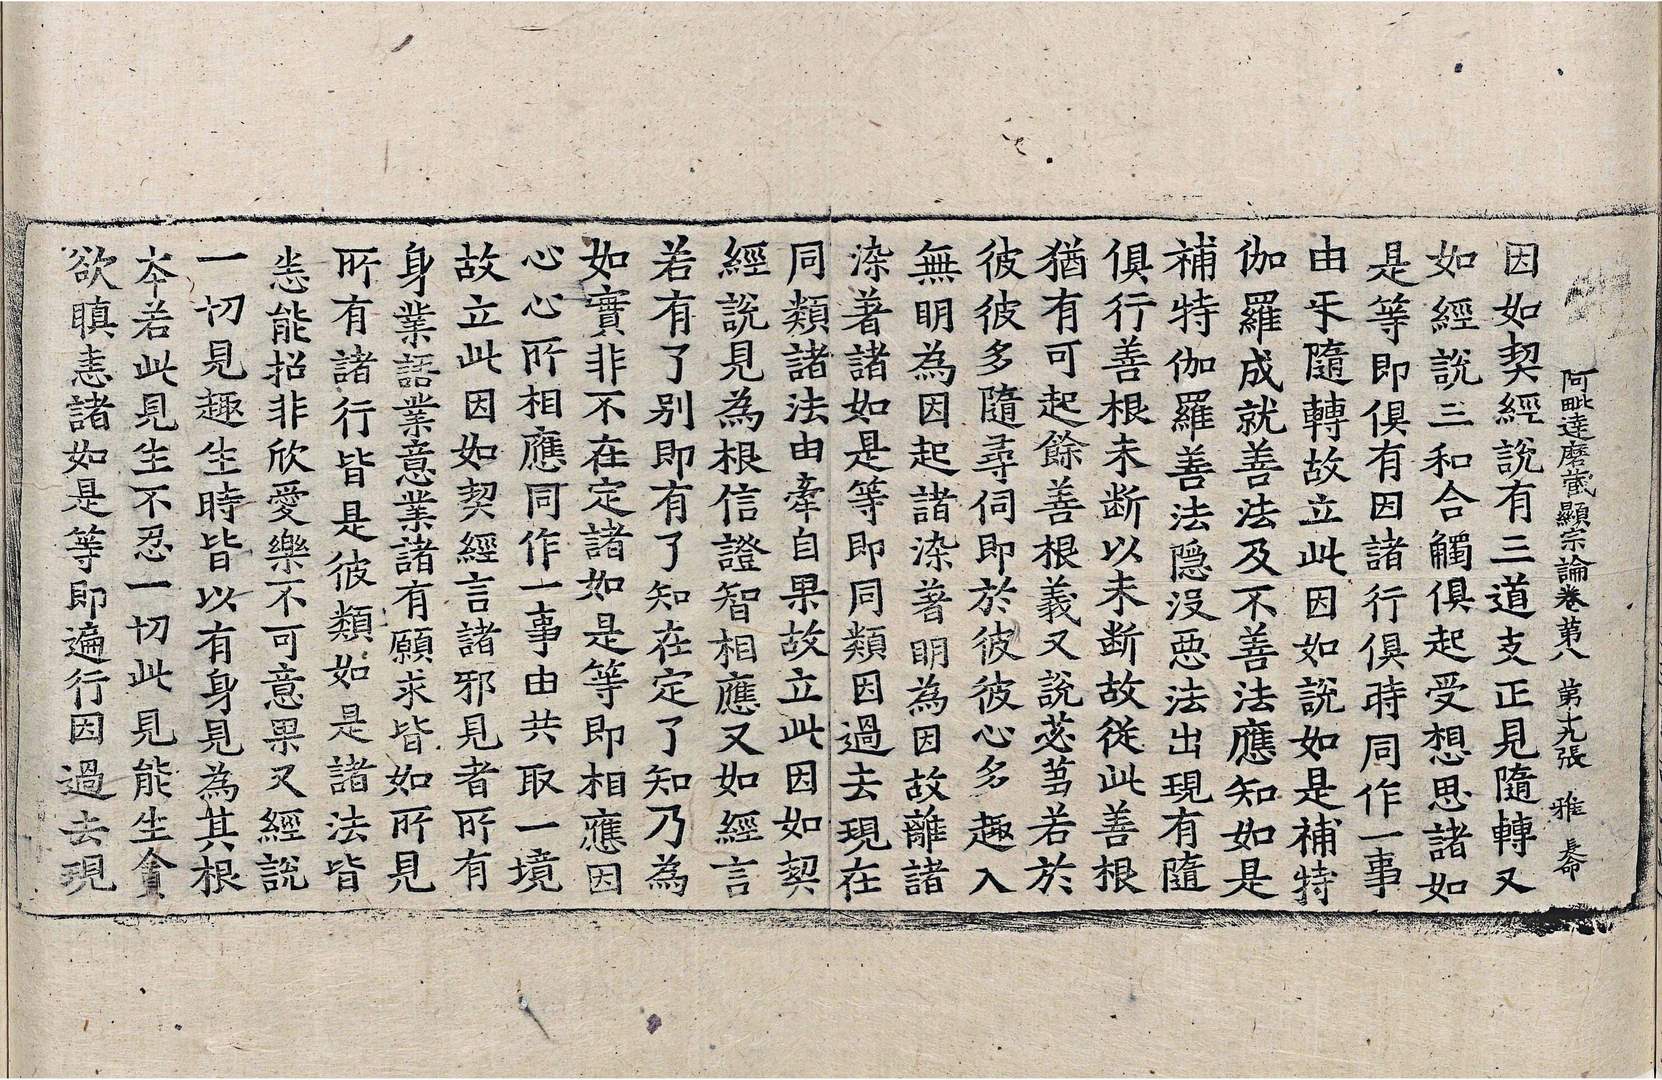 阿毗達磨藏顯宗論卷第八　第十九張　雅　長命
因如契經說有三道支正見隨轉又
如經說三和合觸俱起受想思諸如
是等即俱有因諸行俱時同作一事
由𤣥隨轉故立此因如說如是補特
伽羅成就善法及不善法應知如是
補特伽羅善法隱沒惡法出現有隨
俱行善根未断以未断故從此善根
猶有可起餘善根義又說苾芻若於
彼彼多隨尋伺即於彼彼心多趣入
無明為因起諸染著明為因故離諸
染著諸如是等即同類因過去現在
同類諸法由牽自果故立此因如契
經說見為根信證智相應又如經言
若有了別即有了知在定了知乃為
如實非不在定諸如是等即相應因
心心所相應同作一事由共取一境
故立此因如契經言諸邪見者所有
身業語業意業諸有願求皆如所見
所有諸行皆是彼類如是諸法皆
恚能招非欣愛樂不可意果又經說
一切見趣生時皆以有身見為其根
本若此見生不忍一切此見能生貪
欲瞋恚諸如是等即遍行因過去現